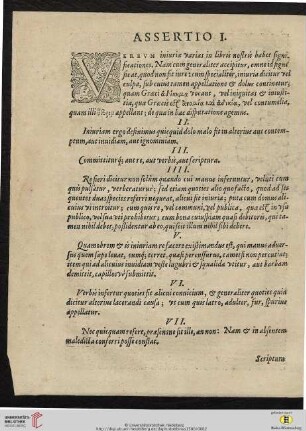 ASSERTIO I.
VERBVM iniuria varias in libris nostris habet signi-
ficationes. Nam cum generaliter accipitur, omne id signi-
ficat, quod non fit iure: cum specialiter, iniuria dicitur vel
culpa, sub cuius tamen appellatione & dolus continetur,
quam Graeci vocant, vel iniquitas & iniusti-
tia, quam Graeci vel contumelia,
quam illi appellant: de qua in hac disputatione agemus.
II.
Iniuriam ergo definimus quicquid dolo malo fit in alterius aut contem-
ptum, aut inuidiam, aut ignominiam.
III.
Committitur aut re, aut verbis, aut scriptura.
IIII.
Re fieri dicitur non solùm quando cui manus inferuntur, veluti cum
quis pulsatur, verberatur: sed etiam quoties alio quo facto, quod ad se-
quentes duas species referri nequeat, alicui fit iniuria; puta cum domus ali-
cuius introitur; cum quis re, vel communi, vel publica, quae est in vsu
publico, vti prohibetur; cum bona cuiusquam quasi debitoris, qui ta-
men nihil debet, possidentur ab eo, qui scit illum nihil sibi debere.
V.
Quam obrem & is iniuriam re facere existimandus est, qui manus aduer-
sus quem
item qui ad alicuius inuidiam veste lugubri & squalida vtitur, aut barbam
demittit, capillos submittit.
VI.
Verbis infertur quoties fit alicui conuicium, & generaliter quoties quid
dicitur alterius lacerandi causa; vt cum quis latro, adulter, fur, spurius
appellatur.
VII.
Nec quicquam refert, praesens sit ille, an non: Nam & in absentem
maledicta conferri posse constat.
Scriptura